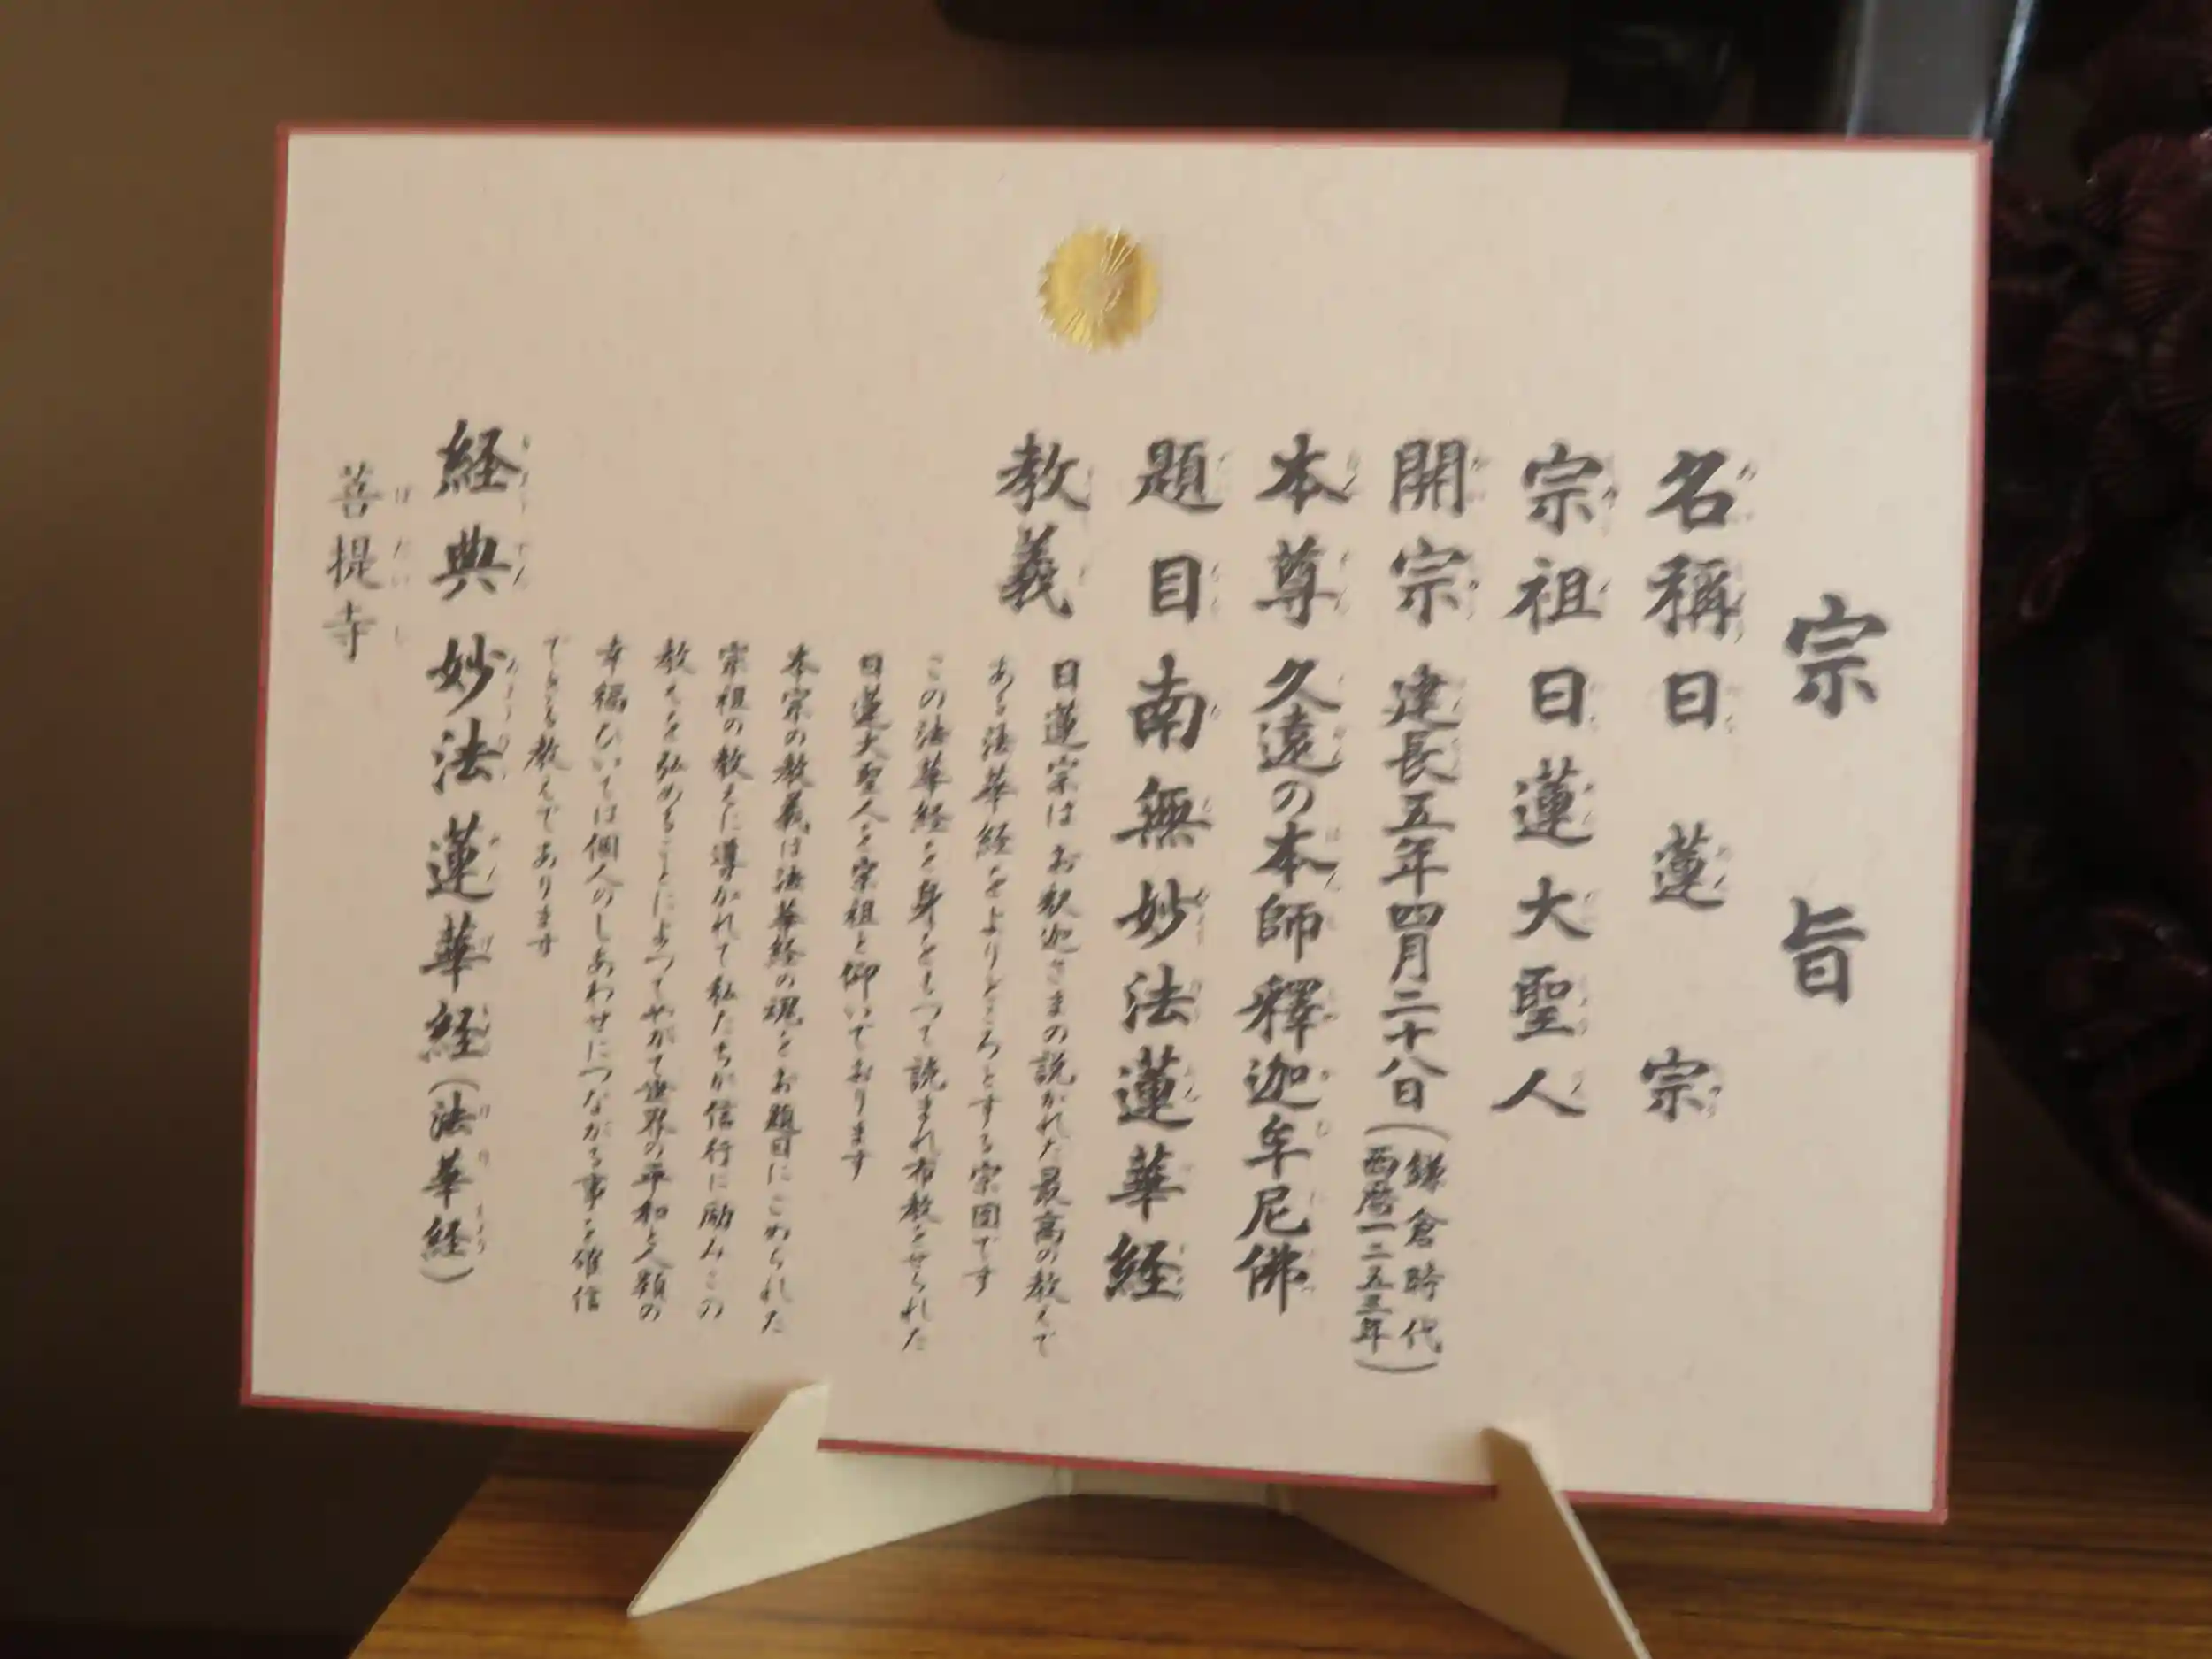 宗旨
名稱 日蓮宗
宗祖 日蓮大聖人
開宗 建長五年四月二十八日(鎌倉時代 西暦一二五三年)
本尊 久遠の本師釋迦牟尼佛
題目 南無妙法蓮華経
教義 日蓮宗はお釈迦さまの説かれた最高の教えで
ある法華経をよりどころとする宗団です
この法華経を身をもつて読まれ布教をせられた
日蓮大聖人を宗祖と仰いでおります
本宗の教義は法華経の魂をお題目にこめられた
宗祖の教えに導かれて私たちが信行に励みこの
教えを弘めることによつてやがて世界の平和と人類の
幸福ひいては個人のしあわせにつながる事を確信
できる教えであります
経典 妙法蓮華経(法華経)
菩提寺